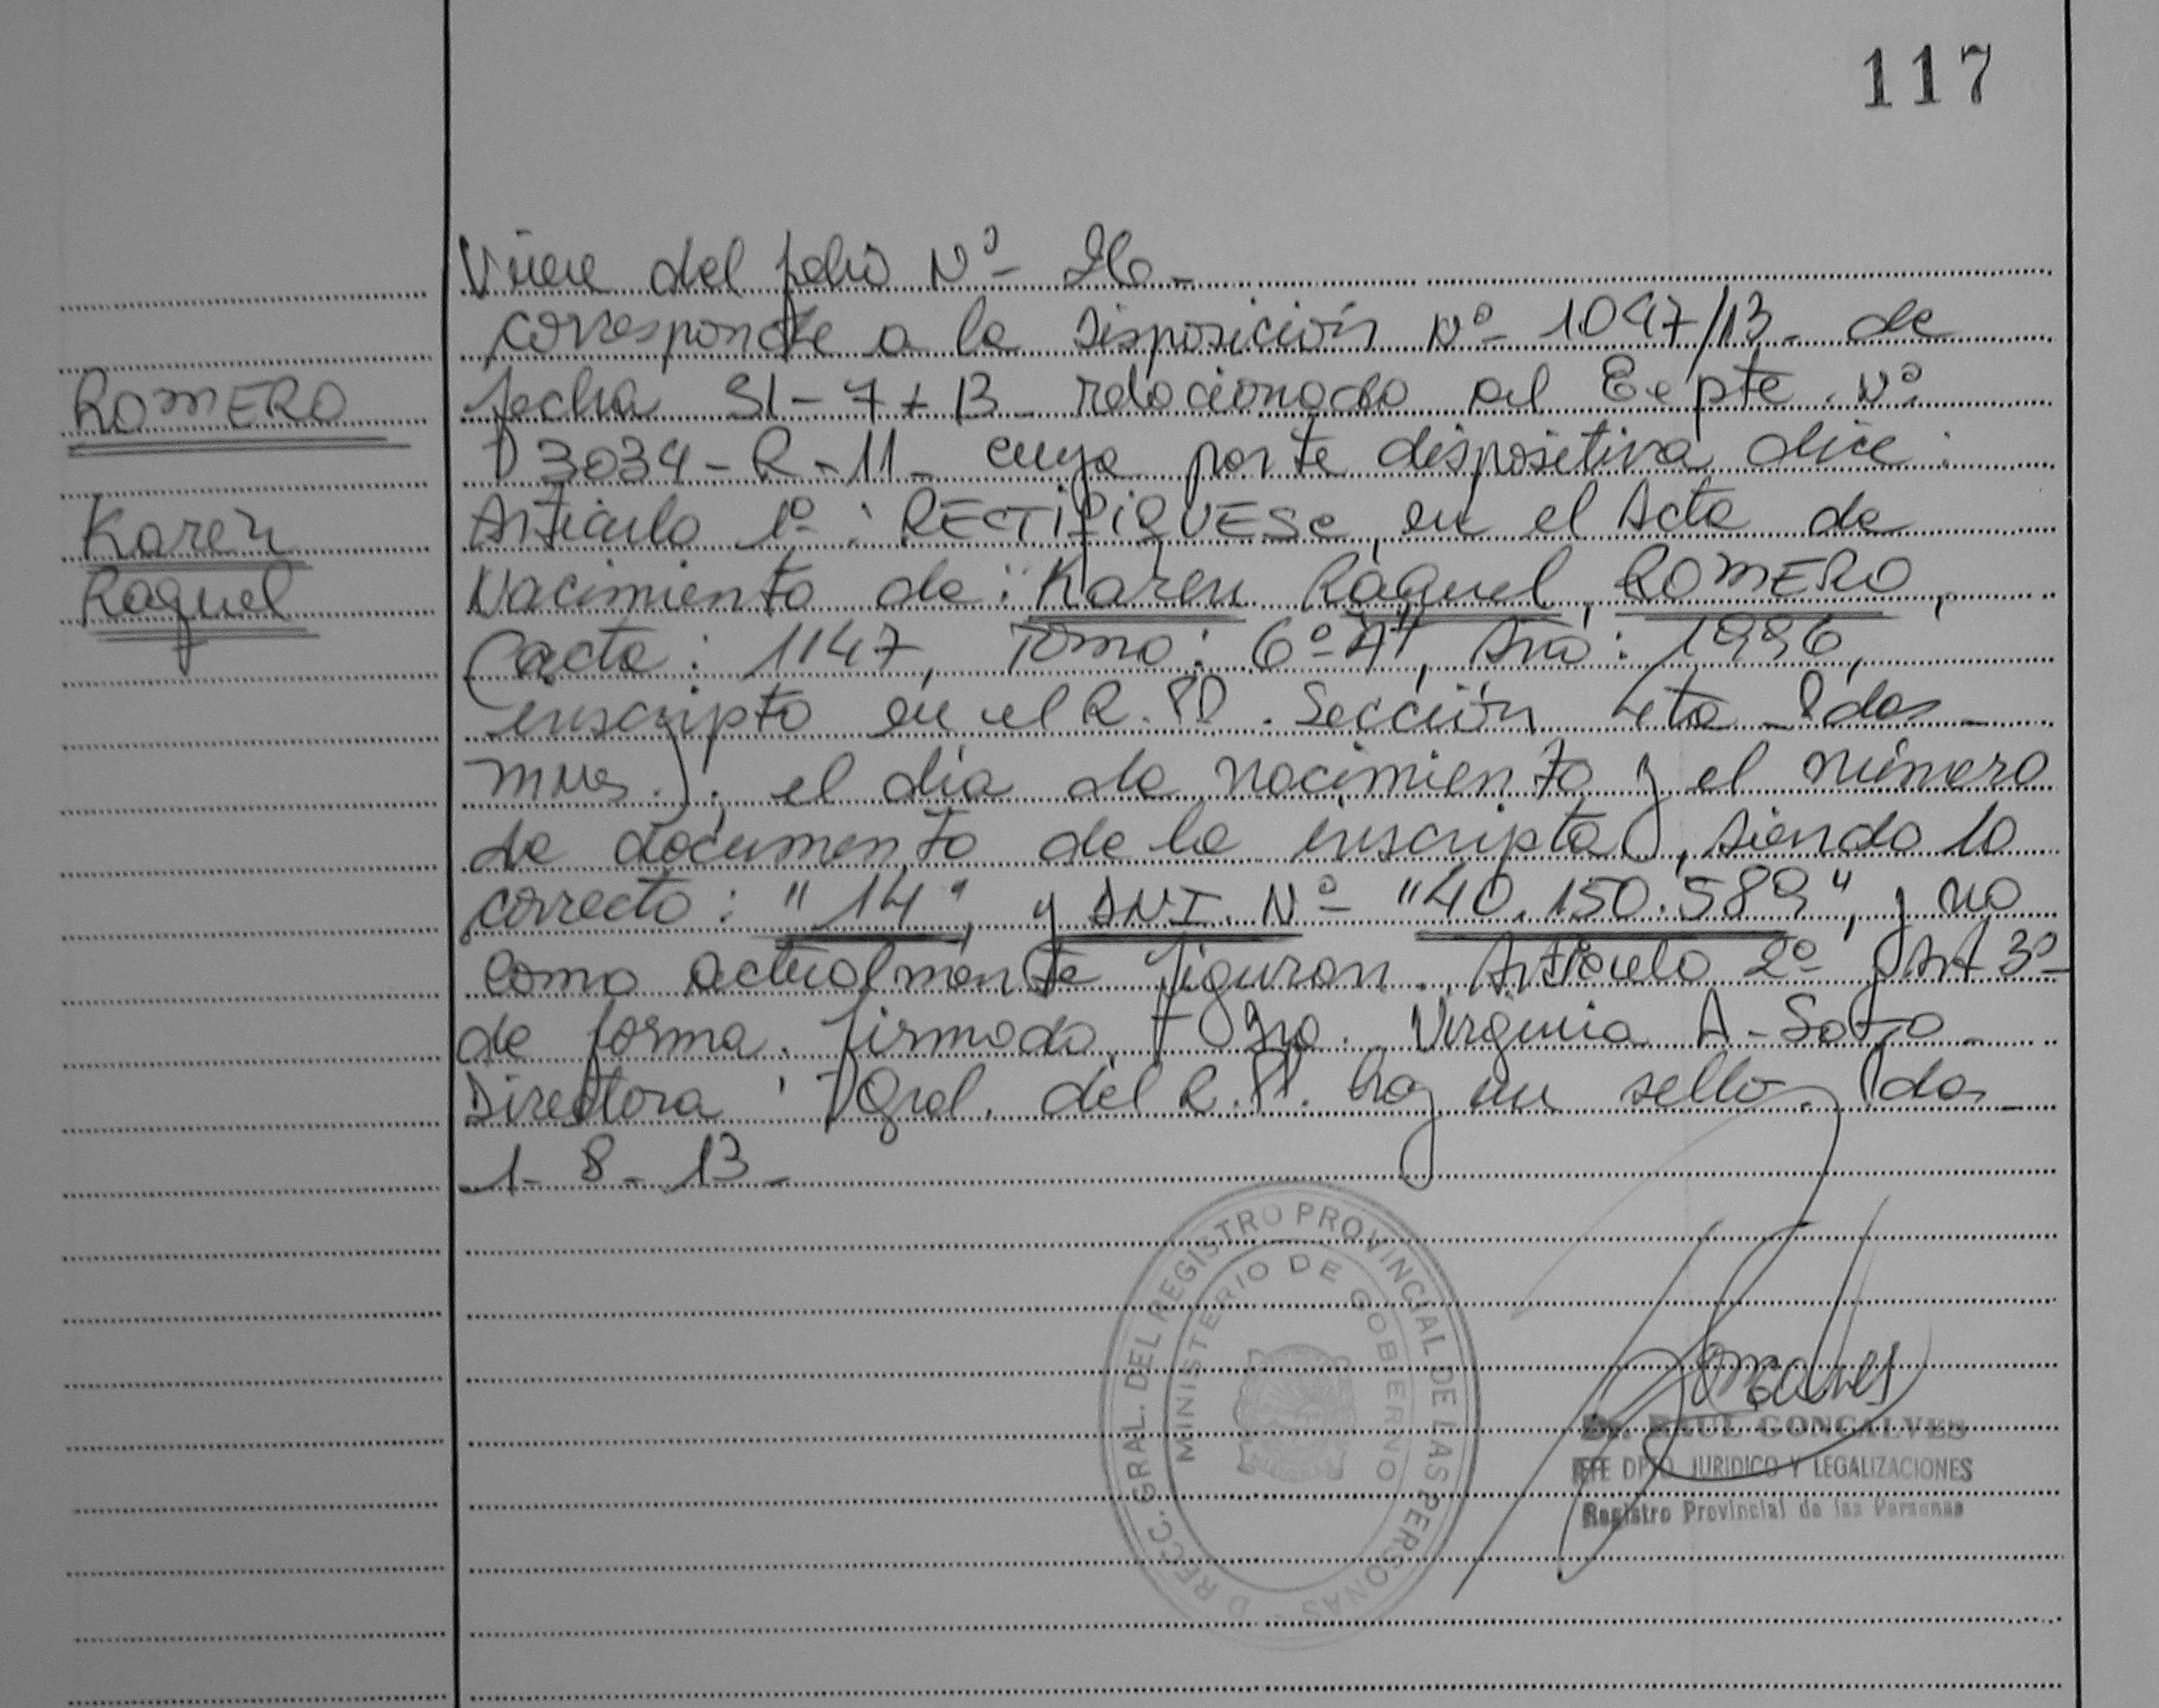 117
Viene del folio Nº
corresponde a la Disposición Nº 1047/13 - de
fecha 31-7-13 relacionado al Expte. Nº
ROMERO
D3034-R-11- cuya parte dispositiva dice:
Karen
Artículo 1º: RECTIFIQUESE, en el Acta de
Raquel
Nacimiento de: Karen Raquel, ROMERO,
(acta: 1147, Tomo: 6º "A", Año: 1996,
inscripta en el R.P. Sección 4ta
el día de nacimiento y el número
de documento de la inscripta, siendo lo
correcto: "14", y DNI. Nº "40.150.589", y no
como actualmente figuran. Artículo 2º y Art 3º
de forma. firmado, Virginia A. Soto -
Directora Gral. del R.P. hay un sello.
1-8-13-
DIRECC. GRAL. DEL REGISTRO PROVINCIAL DE LAS PERSONAS
MINISTERIO DE GOBIERNO
Dr. RAUL GONCALVES
JEFE DPTO. JURIDICO Y LEGALIZACIONES
Registro Provincial de las Personas